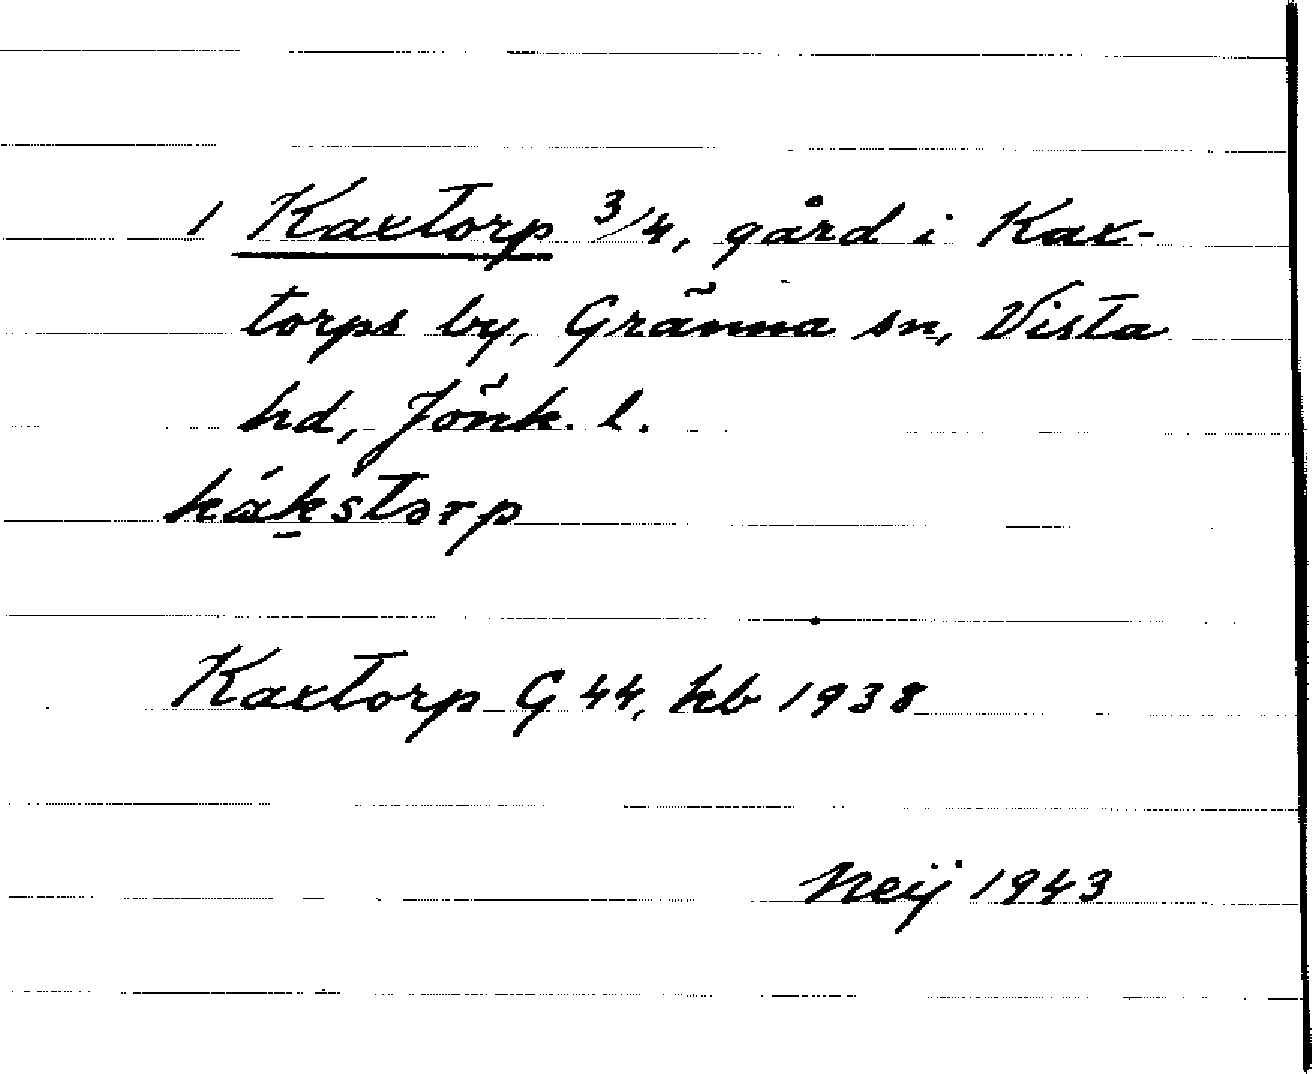 1 Kaxtorp 3/4, gård i Kax-
torps by, Gränna sn, Vista
hd, Jönk. l.
kák̠storp
Kaxtorp G 44, kb 1938
Neij 1943